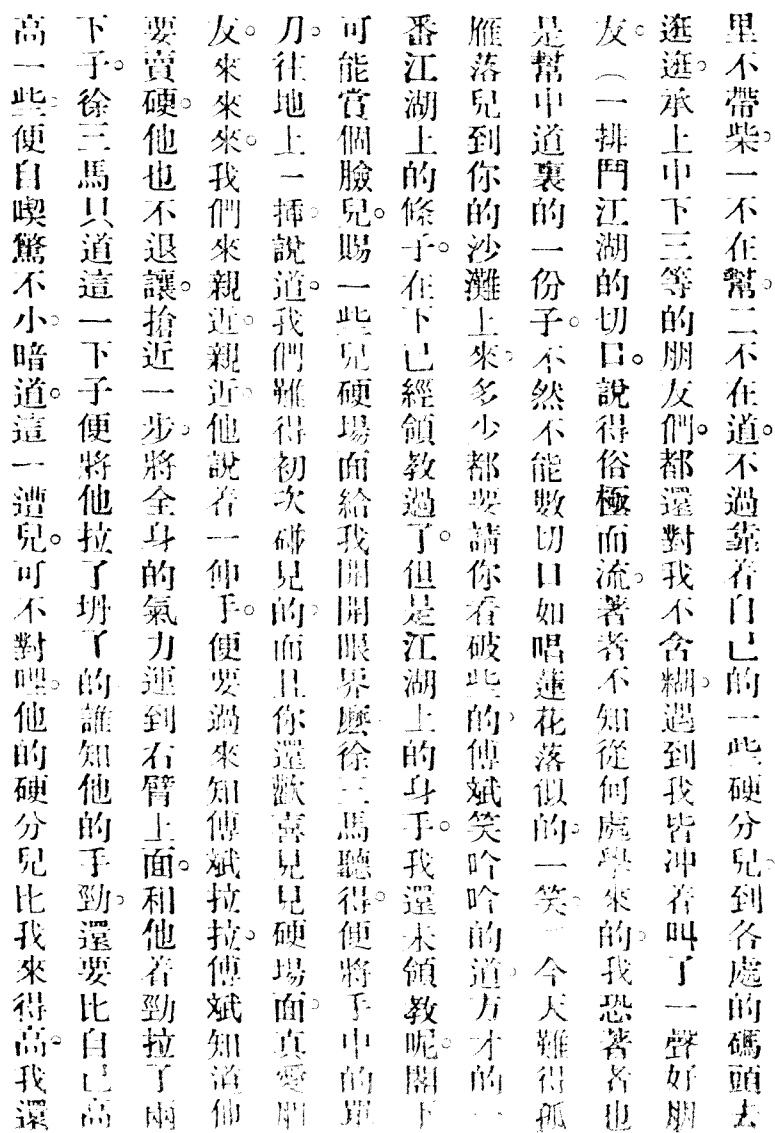 里不帶柴。一不在幫。二不在道。不過靠着自己的一些硬分兒。到各處的碼頭去
逛逛。承上中下三等的朋友們。都還對我不含糊。遇到我皆冲着叫了一聲好朋
友。（一排門江湖的切口。說得俗極而流。著者不知從何處學來的。我恐著者也
是幫中道裏的一份子。不然不能數切口如唱蓮花落似的。一笑。）今天難得孤
雁落兒到你的沙灘上來。多少都要請你看破些的。傅斌笑吟吟的道。方才的一
番江湖上的條子。在下已經領教過了。但是江湖上的身手。我還未領教呢。閣下
可能賞個臉兒。賜一些兒硬場面給我開開眼界麽。徐三馬聽得。便將手中的單
刀往地上一插。說道。我們難得初次碰見的。而且你還歡喜見見硬場面。真愛朋
友。來來來。我們來親近親近。他說着一伸手。便要過來知傅斌拉拉。傅斌知道他
要賣硬。他也不退讓。搶近一步。將全身的氣力運到右臂上面。和他着勁拉了兩
下子。徐三馬只道這一下子便將他拉了坍了的。誰知他的手勁。還要比自己高
高一些。便自喫驚不小。暗道。這一遭兒。可不對哩。他的硬分兒比我來得高。我還